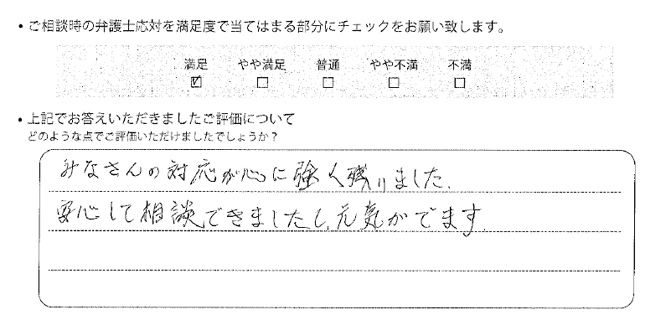 ・ご相談時の弁護士応対を満足度で当てはまる部分にチェックをお願い致します。
満足 やや満足 普通 やや不満 不満
☑ □ □ □ □
・上記でお答えいただきましたご評価について
どのような点でご評価いただけましたでしょうか？
みなさんの対応が心に強く残りました。
安心して相談できましたし、元気がでます。